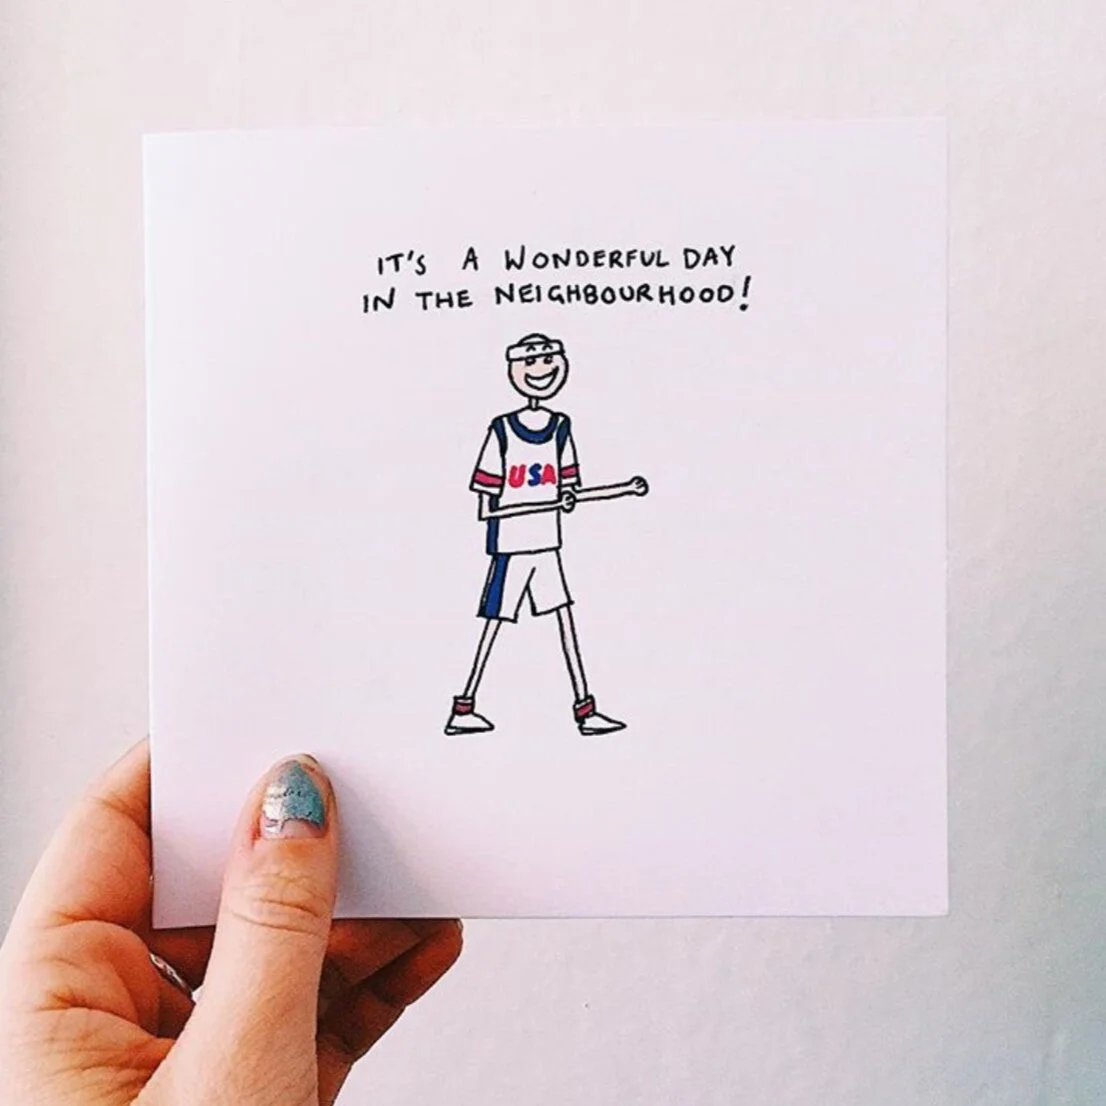 IT'S A WONDERFUL DAY
IN THE NEIGHBOURHOOD!
USA